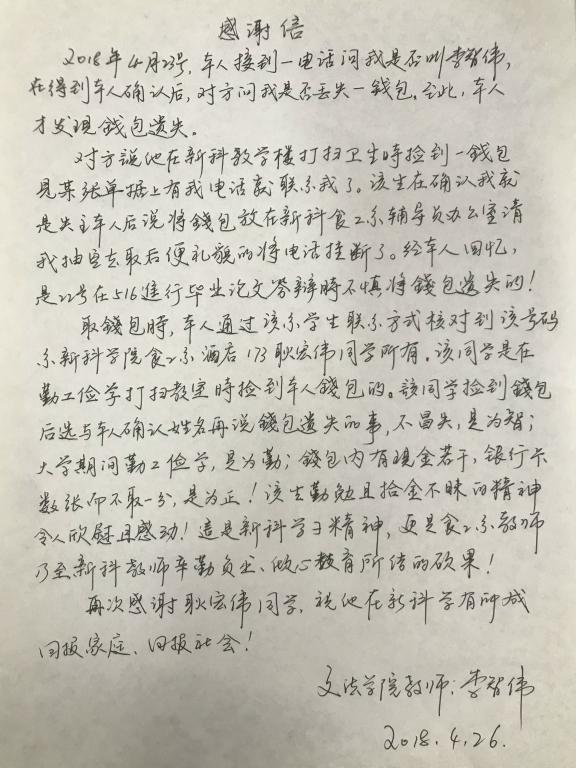 感谢信
2018年4月23号,本人接到一电话问我是否叫李智伟,
在得到本人确认后,对方问我是否丢失一钱包。至此,本人
才发现钱包遗失。
对方说他在新科教学楼打扫卫生时捡到一钱包
见某张单据上有我电话就联系我了。该生在确认我就
是失主本人后说将钱包放在新科食工系辅导员办公室请
我抽空去取后便礼貌的将电话挂断了。经本人回忆,
是22号在516进行毕业论文答辩时不慎将钱包遗失的!
取钱包时,本人通过该系学生联系方式核对到该号码
系新科学院食工系酒店173耿宏伟同学所有。该同学是在
勤工俭学打扫教室时捡到本人钱包的。该同学捡到钱包
后选与本人确认姓名再说钱包遗失的事,不冒失,是为智;
大学期间勤工俭学,是为勤;钱包内有现金若干,银行卡
数张而不取一分,是为正!该生勤勉且拾金不昧的精神
令人欣慰且感动!这是新科学子精神,更是食工系教师
乃至新科教师辛勤负出、倾心教育所结的硕果!
再次感谢耿宏伟同学,祝他在新科学有所成
回报家庭、回报社会!
文法学院教师:李智伟
2018.4.26.